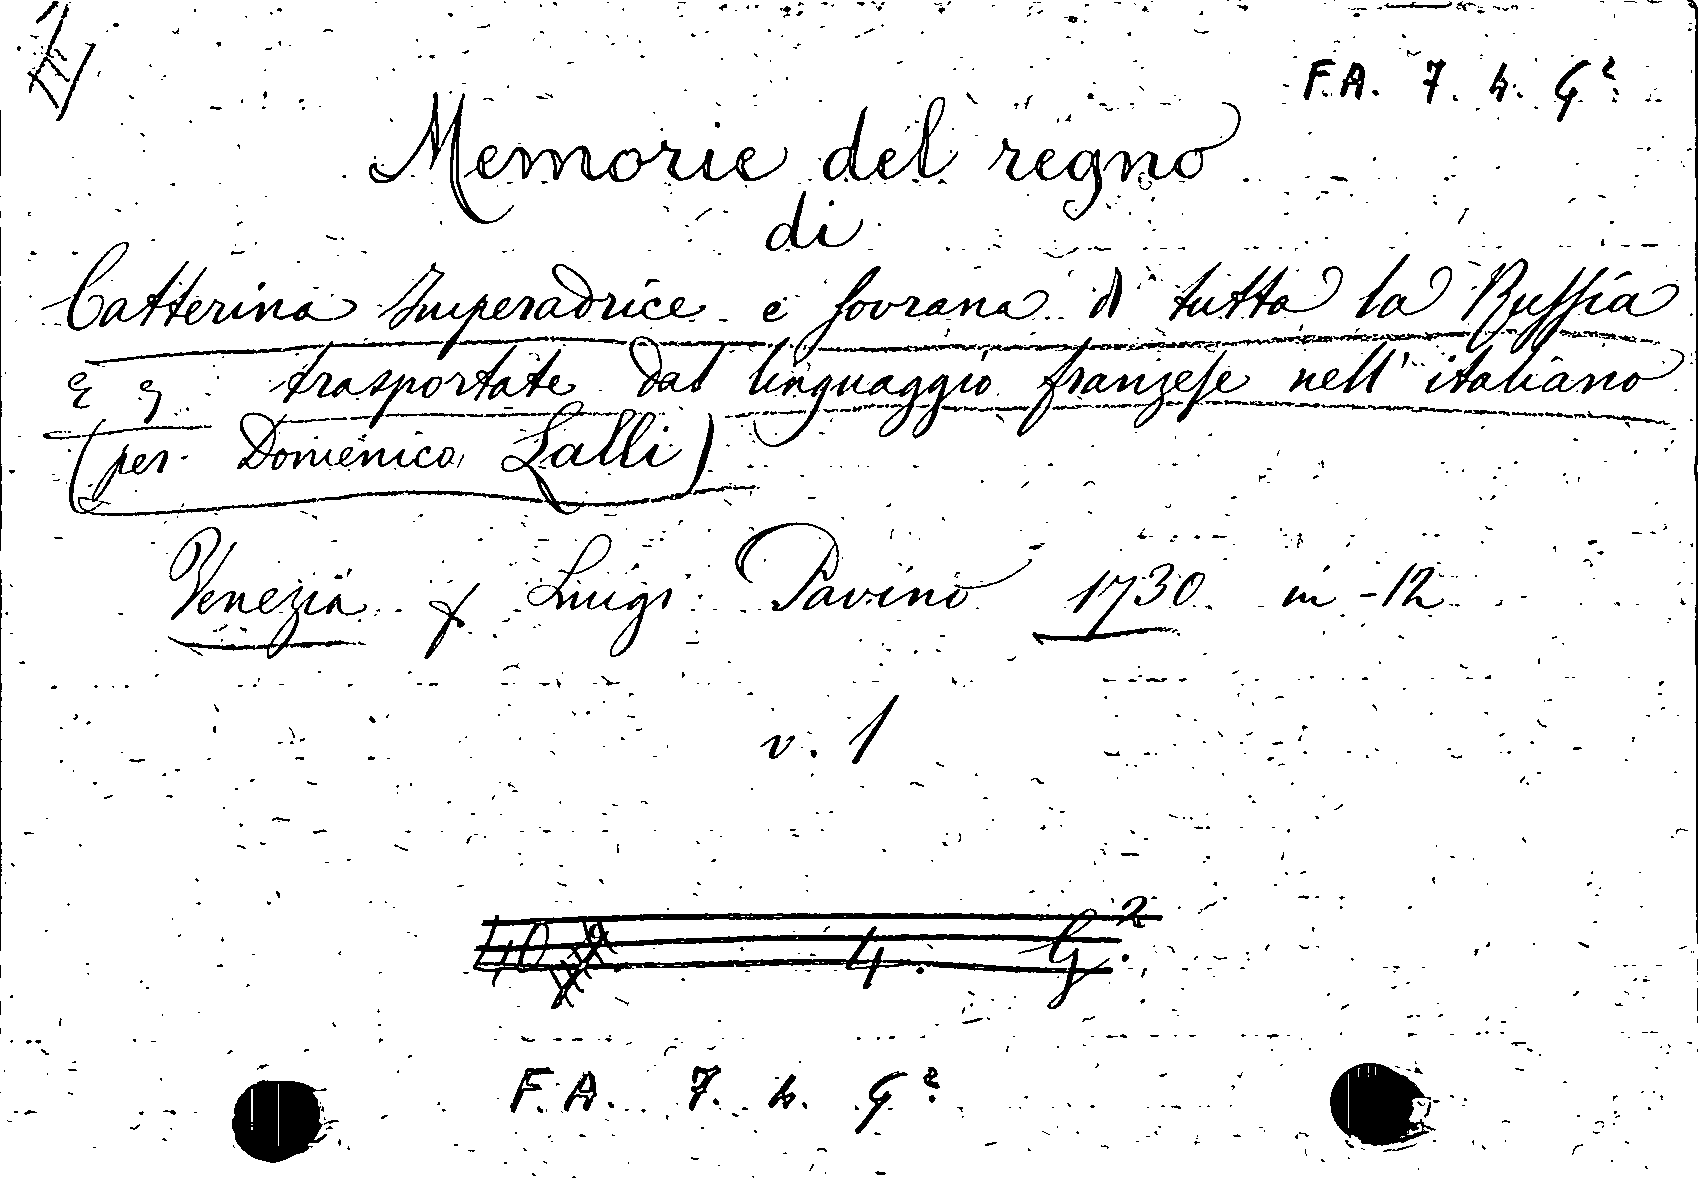 F.A. 7. h. G²
Memorie del regno
di
Catterina Imperadrice e sovrana di tutta la Russia
trasportate dal linguaggio franzese nell' italiano
(per Domenico Lalli)
Venezia Luigi Pavino 1730 in -12
v. 1
4. G².
F.A. 7. h. G²